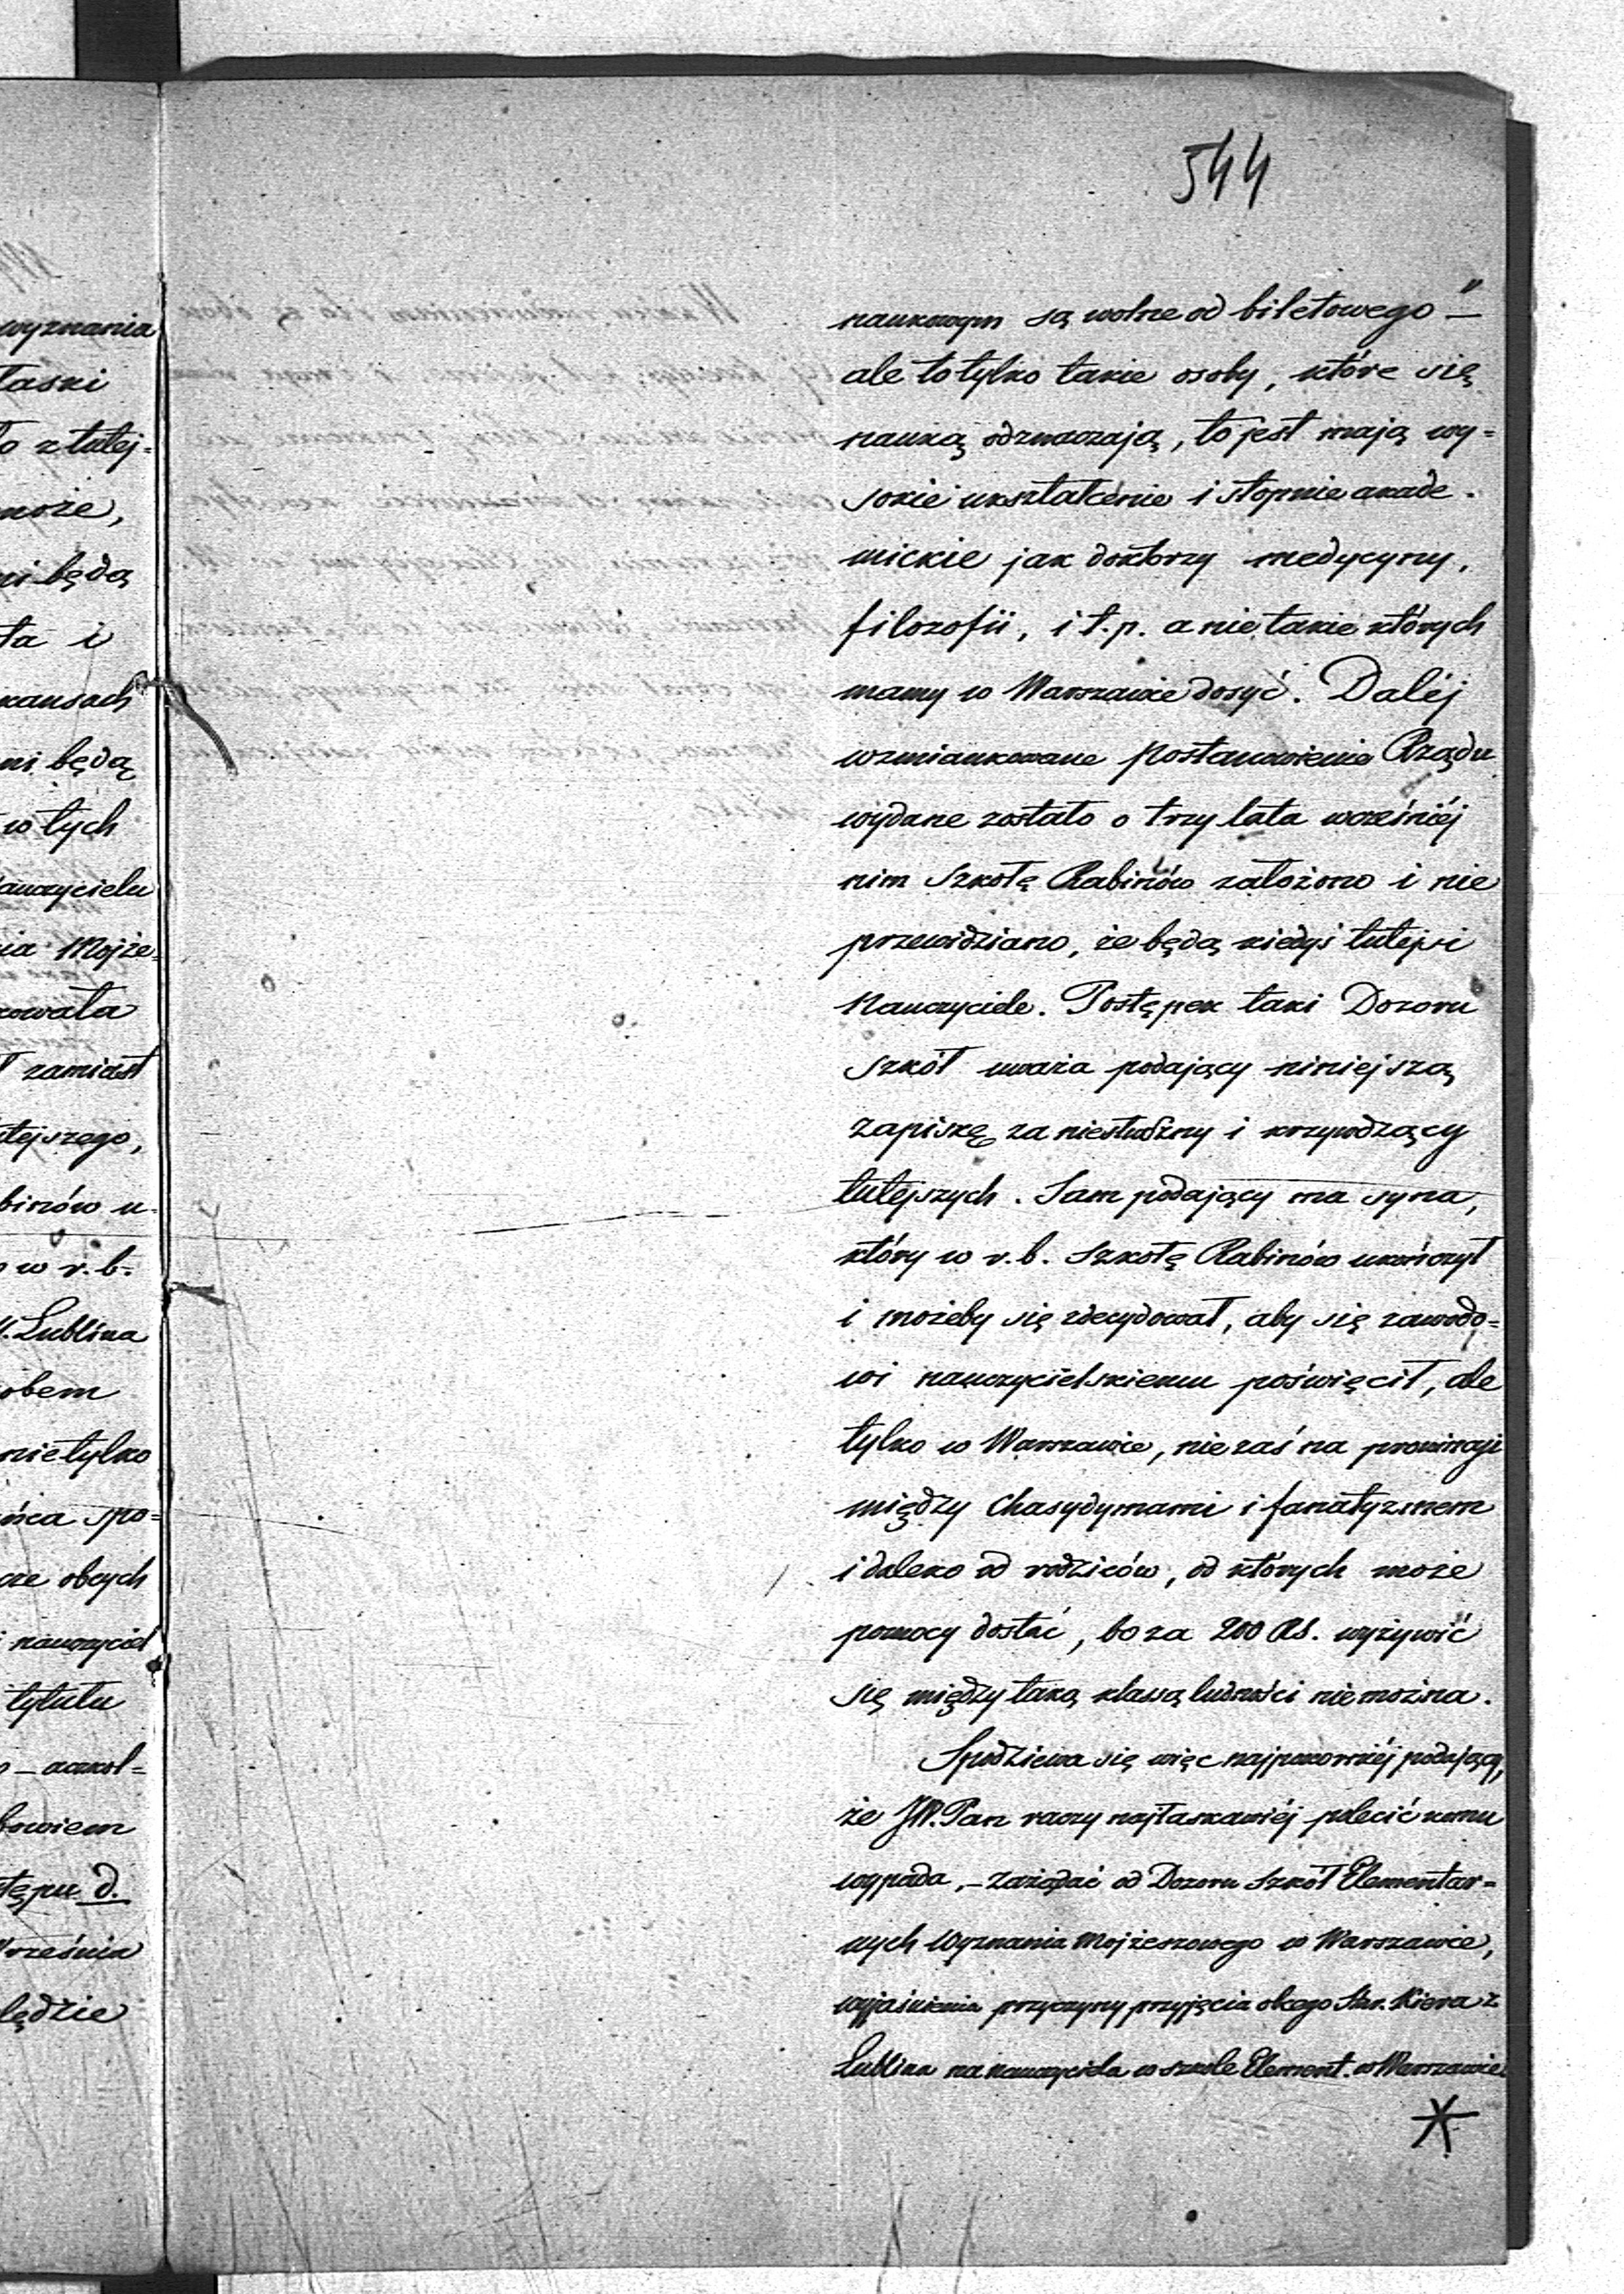 544
naukowym są wolne od biletowego" —
ale to tylko takie osoby, które się
nauką odznaczają, to jest mają wy=
sokie ukształcenie i stopnie akade-
mickie jak doktorzy medycyny,
filozofii, i t.p. a nie takie których
mamy w Warszawie dosyć. Daléj
wzmiankowane postanowienie Rządu
wydane zostało o trzy lata wcześniéj
nim Szkołę Rabinów założono i nie
przewidziano, że będą kiedyś tutejsi
Nauczyciele. Postępek taki Dozoru
szkół uważa podający niniejszą
zapiskę za niesłuszny i krzywdzący
tutejszych. Sam podający ma syna,
który w r.b. Szkołę Rabinów ukończył
i możeby się zdecydował, aby się zawodo=
wi nauczycielskiemu poświęcił, ale
tylko w Warszawie, nie zaś na prowincji
między Chasydymami i fanatyzmem
i daleko od rodziców, od których może
pomocy dostać, bo za 200 RS. wyżywić
się między taką klassą ludności niemożna.
Spodziewa się więc najpokorniéj podający,
że JW. Pan raczy najłaskawiéj polecić komu
wypada, – zażądać od Dozoru szkół Elementar=
nych Wyznania Mojżeszowego w Warszawie,
wyjaśnienia przyczyny przyjęcia obcego Kiera z
Lublina na nauczyciela w szkole Element. w Warszawie
wyznania
łaski
z tutej=
może,
będą
ta i
będą
w tych
Mojże=
zamiast
w r.b.
Lublina
nietylko
spo=
obcych
nauczyciel
tytułu
bowiem
d.
Września